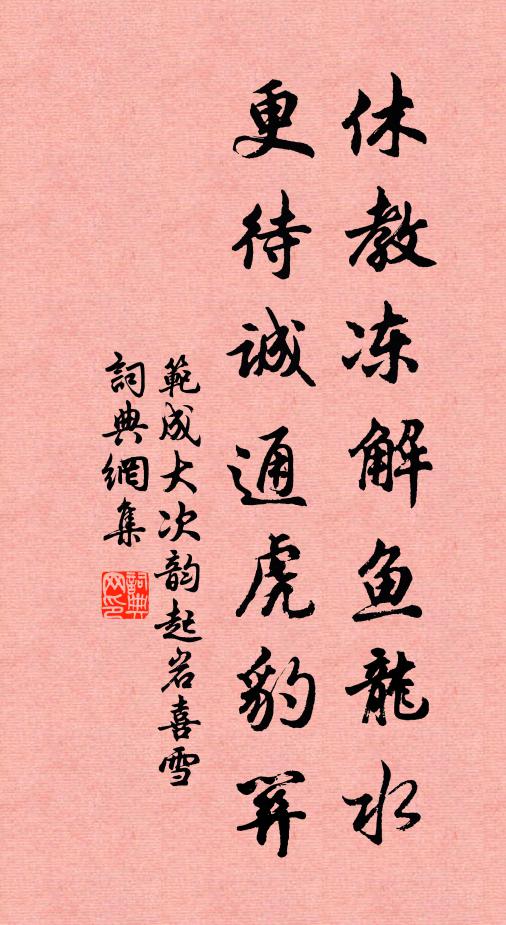 休教冻解鱼龍水
更待诚通虎豹關
範成大次韵起岩喜雪
詞典網集
詞典网印